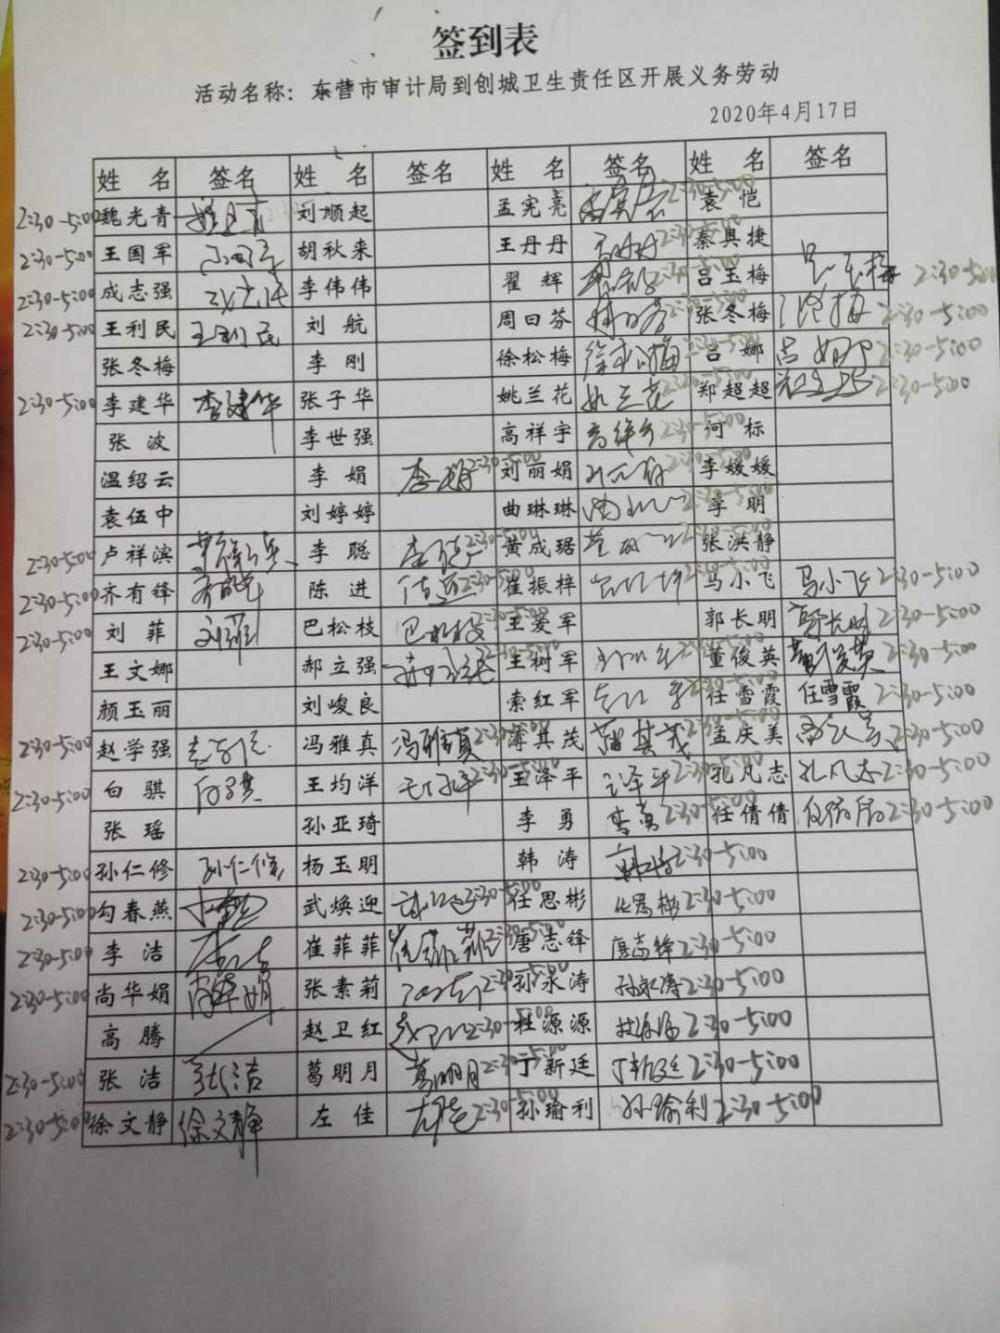 签到表
活动名称：东营市审计局到创城卫生责任区开展义务劳动
2020年4月17日
姓 名 签名 姓 名 签名 姓 名 签名 姓 名 签名
2:30-5:00 魏光青 刘顺起 孟宪亮 2:30-5:00 袁恺
2:30-5:00 王国军 王国军 胡秋来 王丹丹 2:30-5:00 秦奥捷
2:30-5:00 成志强 李伟伟 翟辉 2:30-5:00 吕玉梅 吕玉梅 2:30-5:00
2:30-5:00 王利民 王利民 刘航 周曰芬 2:30-5:00 张冬梅 2:30-5:00
张冬梅 李刚 徐松梅 徐松梅 2:30-5:00 吕娜 吕娜 2:30-5:00
2:30-5:00 李建华 李建华 张子华 姚兰花 姚兰花 2:30-5:00 郑超超 2:30-5:00
张波 李世强 高祥宇 高祥宇 2:30-5:00 何标
温绍云 李娟 李娟 2:30-5:00 刘丽娟 2:30-5:00 李媛媛
袁伍中 刘婷婷 曲琳琳 2:30-5:00 李明
2:30-5:00 卢祥滨 李聪 2:30-5:00 黄成琚 2:30-5:00 张洪静
2:30-5:00 齐有锋 陈进 2:30-5:00 崔振梓 2:30-5:00 马小飞 马小飞 2:30-5:00
2:30-5:00 刘菲 刘菲 巴松枝 巴松枝 2:30-5:00 王爱军 郭长明 郭长明 2:30-5:00
王文娜 郝立强 2:30-5:00 王树军 2:30-5:00 董俊英 董俊英 2:30-5:00
颜玉丽 刘峻良 索红军 2:30-5:00 任雪霞 任雪霞 2:30-5:00
2:30-5:00 赵学强 冯雅真 冯雅真 2:30-5:00 薄其茂 薄其茂 2:30-5:00 孟庆美 2:30-5:00
2:30-5:00 白骐 王均洋 2:30-5:00 王泽平 王泽平 2:30-5:00 孔凡志 孔凡志 2:30-5:00
张瑶 孙亚琦 李勇 李勇 2:30-5:00 任倩倩 2:30-5:00
2:30-5:00 孙仁修 孙仁修 杨玉明 韩涛 韩涛 2:30-5:00
2:30-5:00 勾春燕 武焕迎 2:30-5:00 任思彬 任思彬 2:30-5:00
2:30-5:00 李洁 崔菲菲 2:30-5:00 唐志锋 唐志锋 2:30-5:00
2:30-5:00 尚华娟 尚华娟 张素莉 2:30-5:00 孙永涛 孙永涛 2:30-5:00
高腾 赵卫红 2:30-5:00 杜源源 2:30-5:00
2:30-5:00 张洁 张洁 葛明月 葛明月 2:30-5:00 丁新廷 丁新廷 2:30-5:00
2:30-5:00 徐文静 徐文静 左佳 左佳 2:30-5:00 孙瑜利 孙瑜利 2:30-5:00